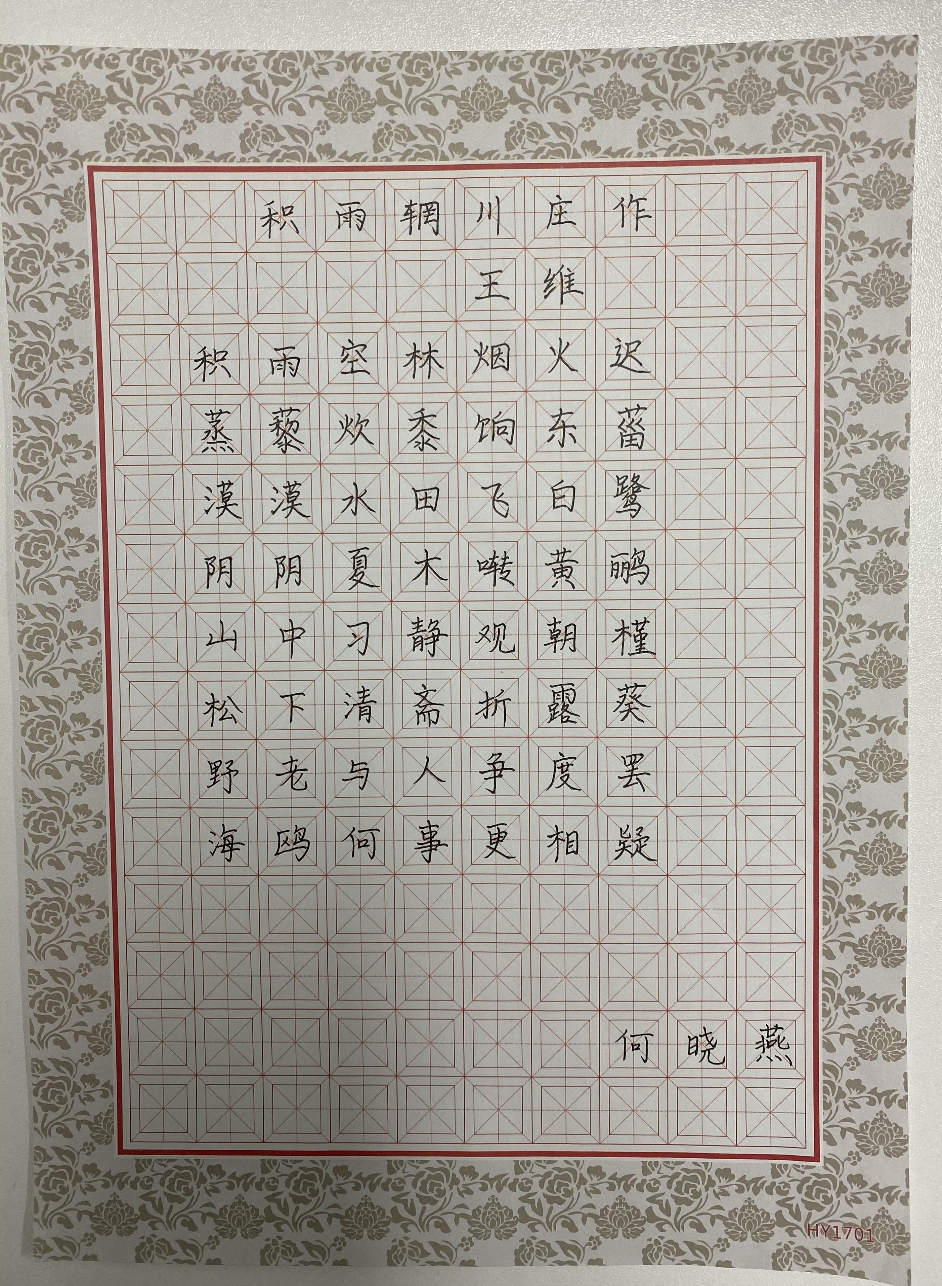 积雨辋川庄作
王维
积雨空林烟火迟
蒸藜炊黍饷东菑
漠漠水田飞白鹭
阴阴夏木啭黄鹂
山中习静观朝槿
松下清斋折露葵
野老与人争度罢
海鸥何事更相疑
何晓燕
HY1701